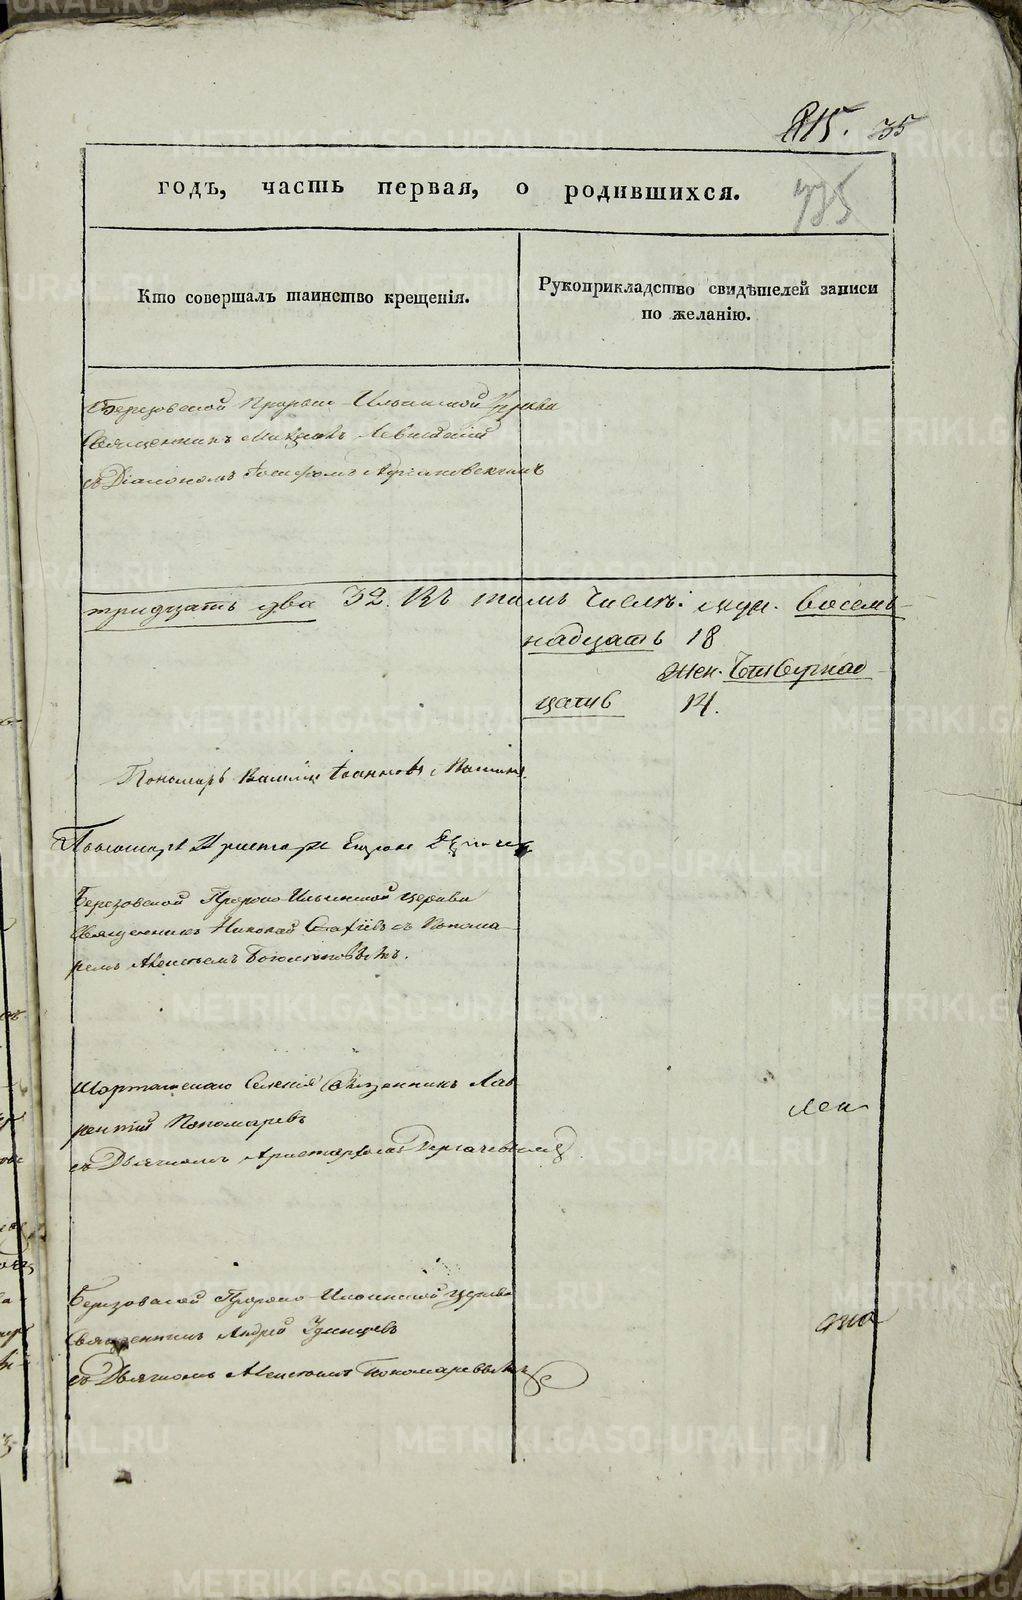 815. 35
735
годъ, часть первая, о родившихся.
Кто совершалъ таинство крещенія.
Рукоприкладство свидѣтелей записи
по желанію.
Березовской Пророко-Ильинской Церкви
Священникъ Левитскій
съ Діакономъ Іосифомъ
тридцать два 32. Въ томъ числѣ: муж. восемь-
надцать 18
жен. Четырнад-
цать 14.
Пономарь Василій Іоанновъ
Пономарь
Березовской Пророко-Ильинской церкви
Священникъ Николай съ Понома-
ремъ Алексѣемъ
Шарташскаго Селенія Священникъ Лав-
рентій Пономаревъ
съ Дьячкомъ Аристархомъ Дергачевымъ
Лен
Березовской Пророко-Ильинской церкви
Священникъ Андрей Удинцевъ
съ Дьячкомъ Алексѣемъ Пономаревымъ
METRIKI.GASO-URAL.RU